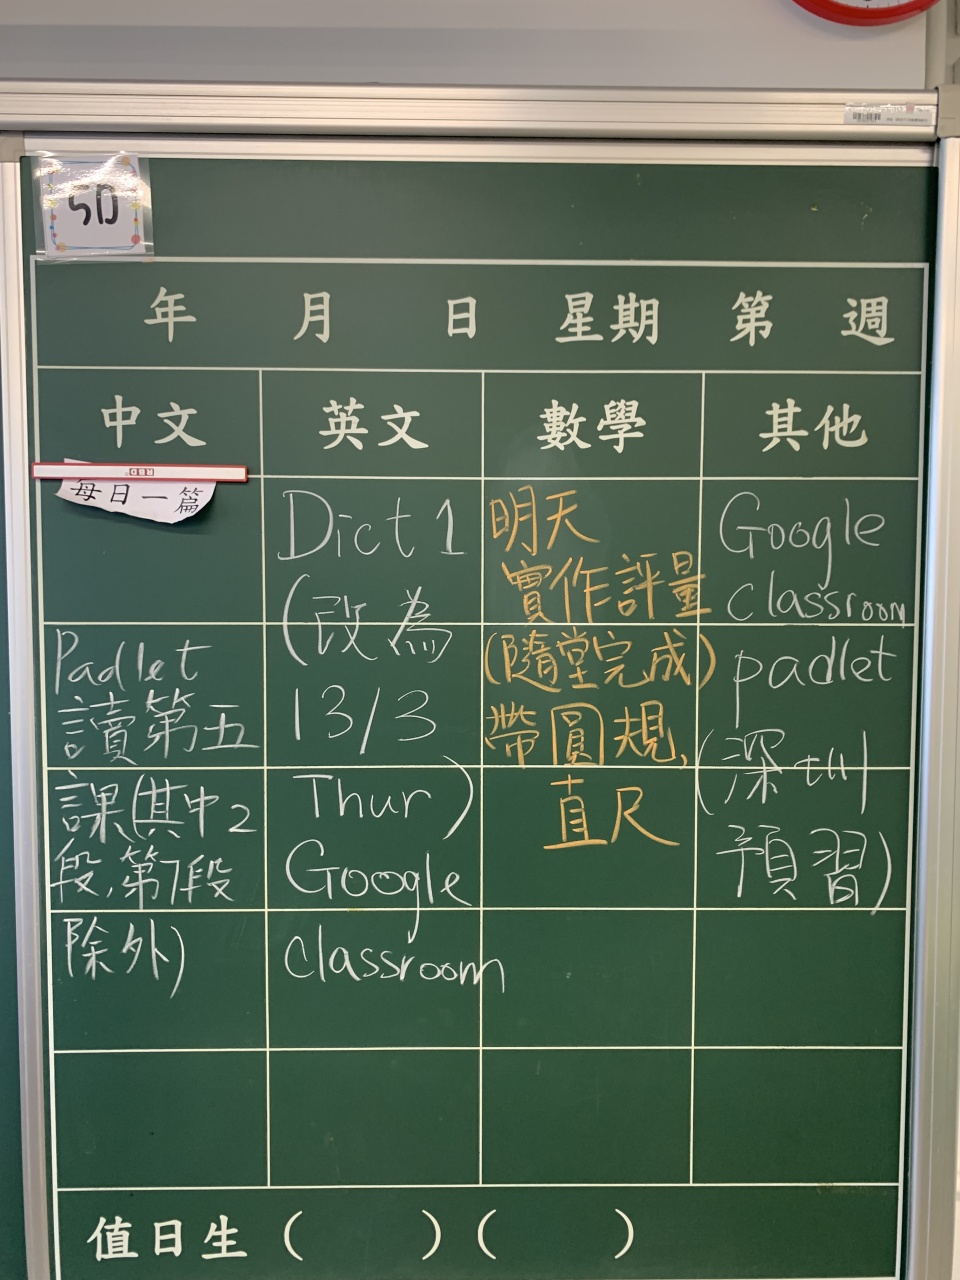 5D
年 月 日 星期 第 週
中文 英文 數學 其他
RBD
每日一篇
Padlet
讀第五
課(其中2
段,第7段
除外)
Dict 1
(改為
13/3
Thur)
Google
classroom
明天
實作評量
(隨堂完成)
帶圓規,
直尺
Google
classroom
padlet
(深圳
預習)
值日生 ( ) ( )